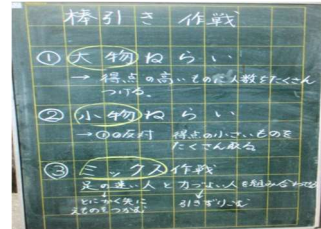 棒引き 作戦
① 大物ねらい
→ 得点の高いものに人数をたくさん
つける。
② 小物ねらい
→ ①の反対 得点の小さいものを
たくさん取る
③ ミックス作戦
足の速い人と力づよい人を組み合わせる
とにかく先に 引きずりこむ
えものをつかむ